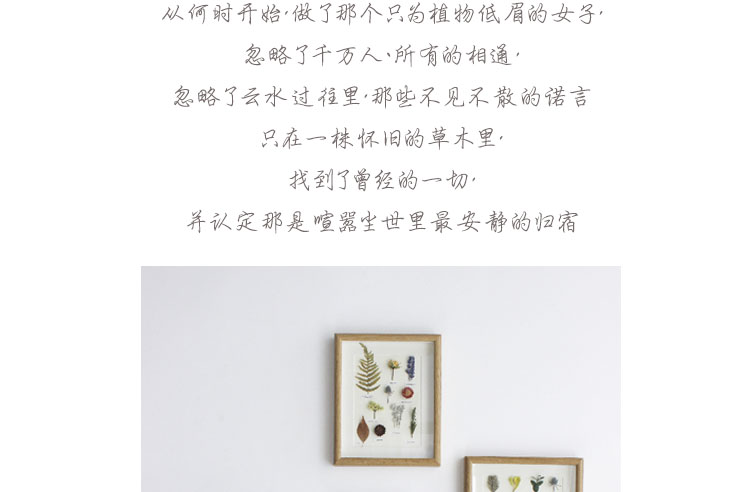 从何时开始,做了那个只为植物低眉的女子,
忽略了千万人、所有的相逋,
忽略了云水过往里,那些不见不散的诺言
只在一株怀旧的草木里,
找到了曾经的一切,
并认定那是喧嚣尘世里最安静的归宿